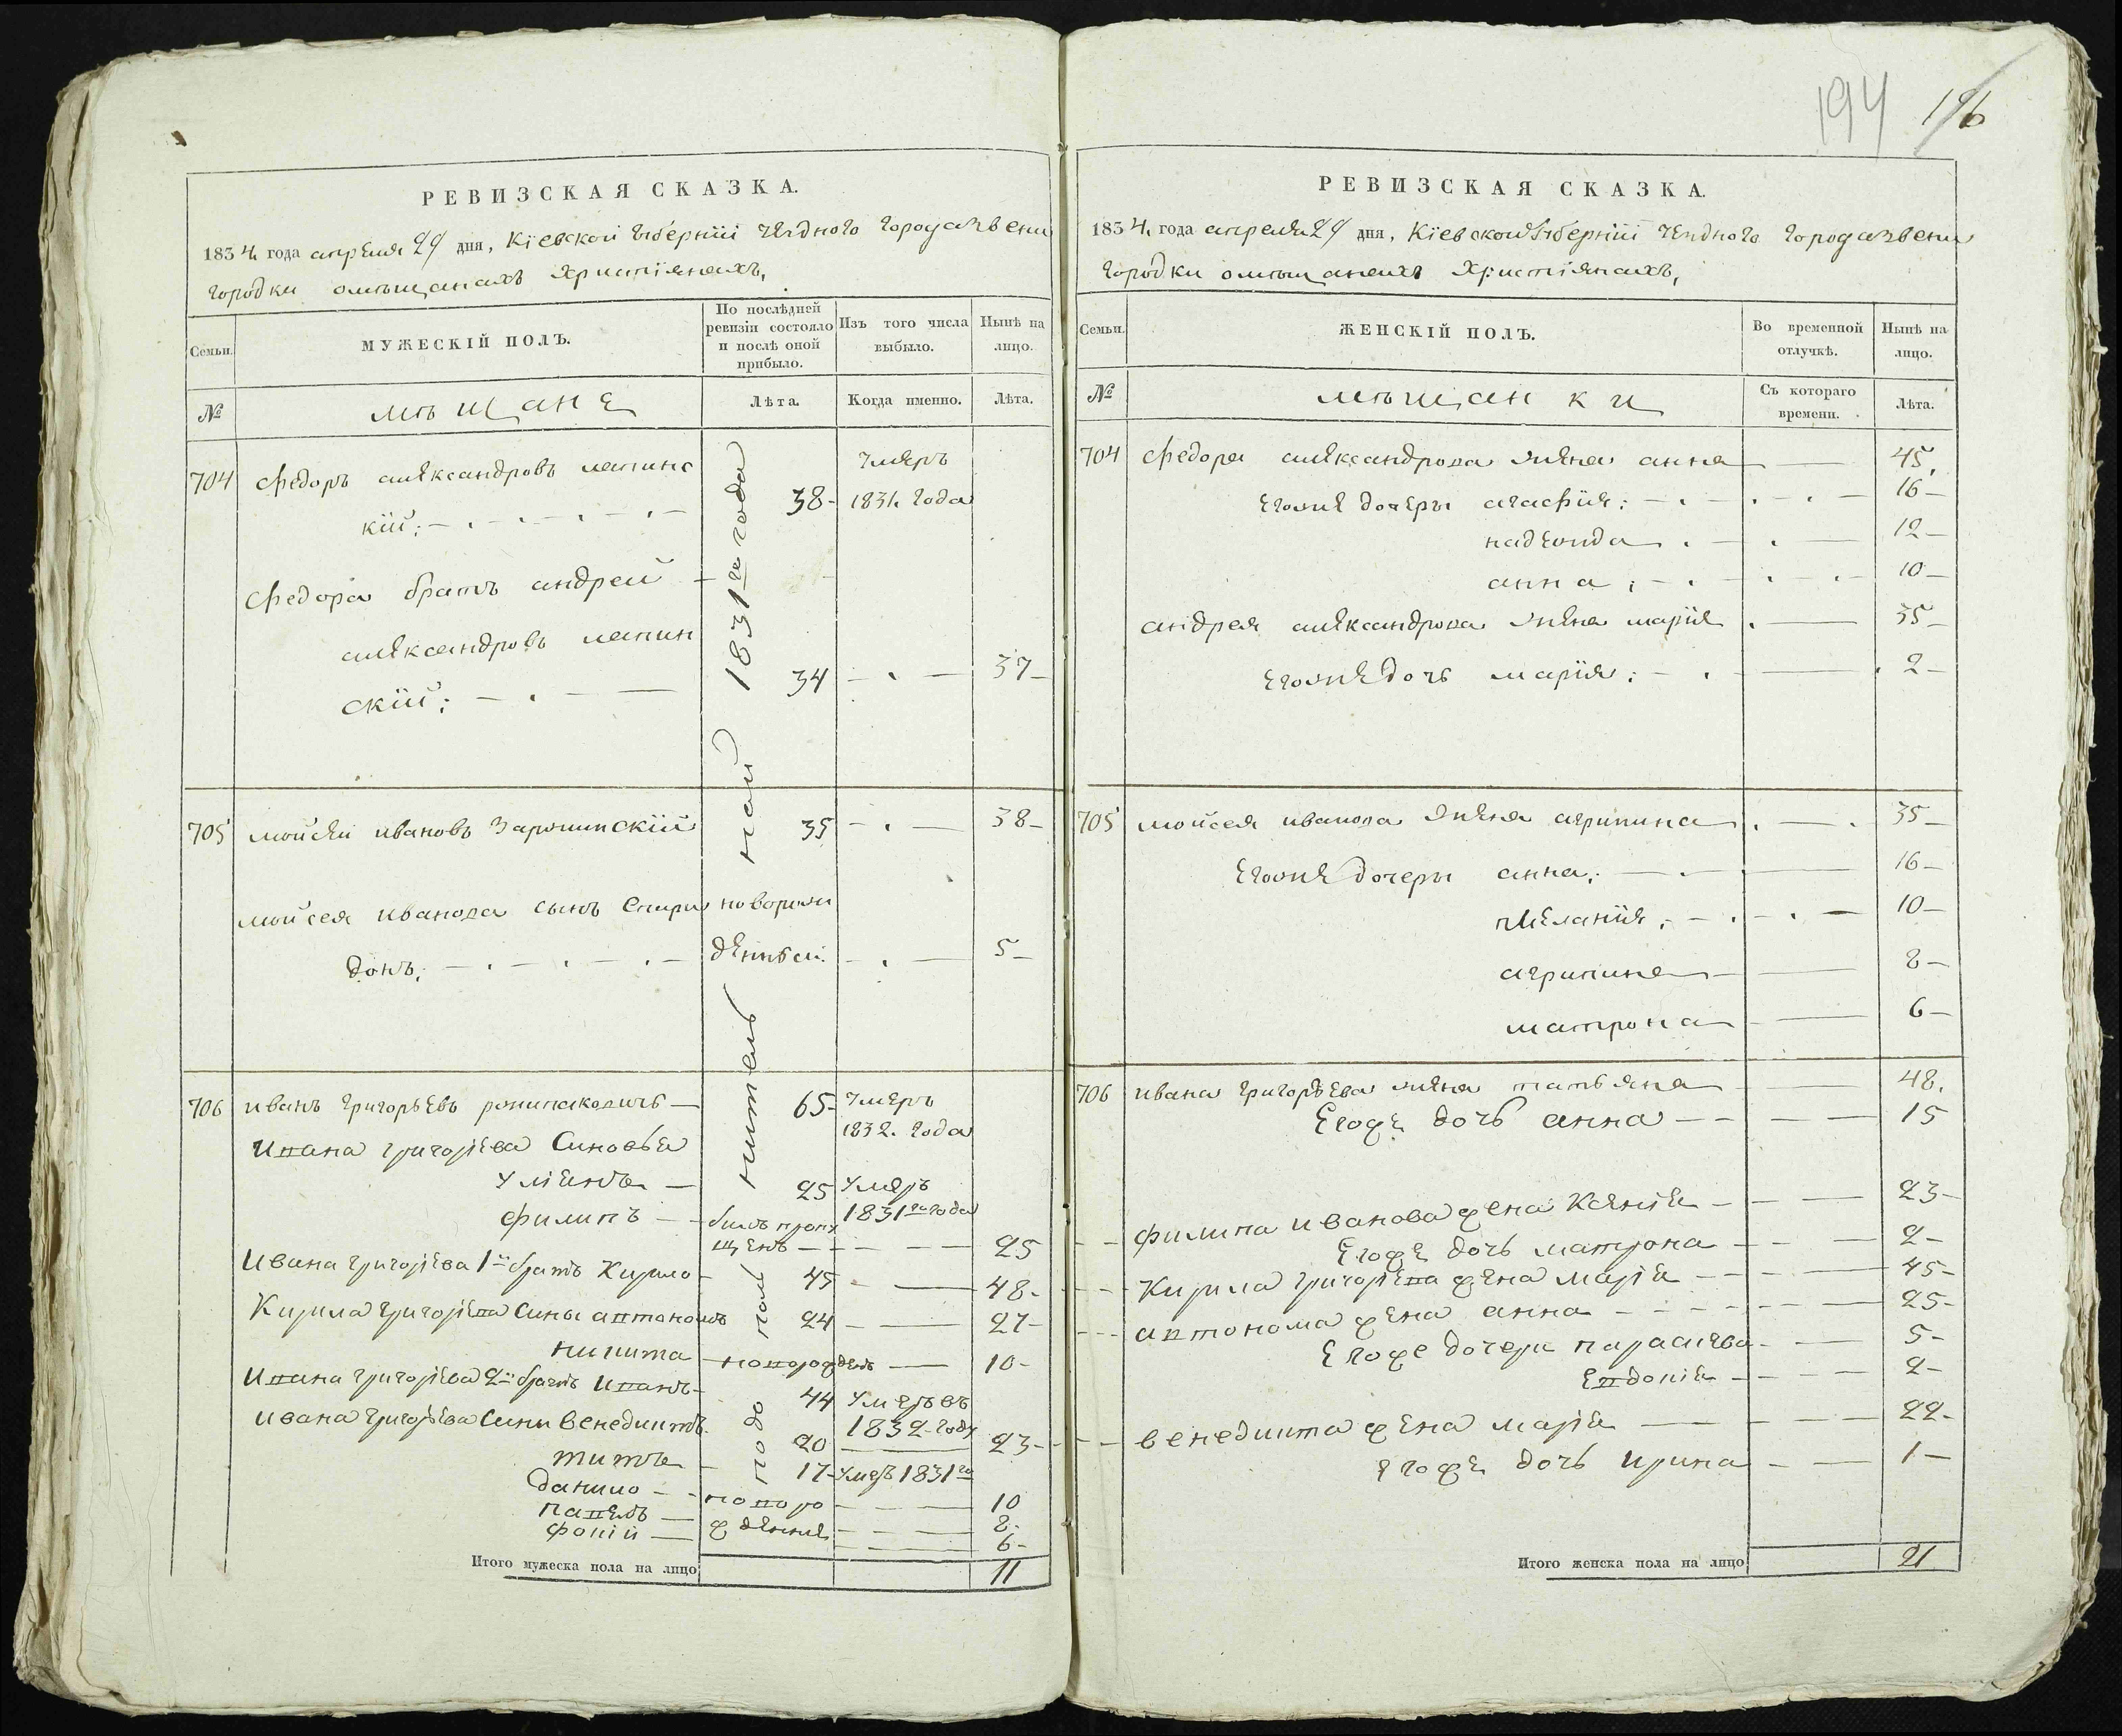 194 196
РЕВИЗСКАЯ СКАЗКА.
1834. года апреля 29 дня, Кіевской губерніи уездного города звени
городки о мѣщанахъ християнахъ,
Семьи.
МУЖЕСКІЙ ПОЛЪ.
По послѣдней ревизіи состояло и послѣ оной прибыло.
Изъ того числа выбыло.
Нынѣ на лицо.
№
мѣщане
Лѣта.
Когда именно.
Лѣта.
704 Федоръ александровъ лапинс умеръ
кій: 38- 1831. года
Федора братъ андрей
александровъ лапин
скій: 34 37-
705 мойсей ивановъ 35 38-
мойсея иванова сынъ спири новорож
донъ: денный. 5-
706 иванъ григорьевъ 65- умеръ
1832. года
Ивана григорієва Синовья
25 умеръ
филипъ - былъ пропу 1831го года
щенъ - 25
Ивана григорієва 1й братъ Кирило- 45 48-
Кирила григорієва Сины автономъ 24 27-
никита новорожденъ 10-
Ивана григорієва 2й братъ Иванъ- 44 умеръ въ
1832-году
ивана григорьева Сини венедиктъ 20 23-
титъ 17- умеръ 1831го
данило - новоро 10
павелъ жденные 8-
фокій 6-
1831го года
Итого мужеска пола на лицо 11
РЕВИЗСКАЯ СКАЗКА.
1834. года апреля 29 дня, Кіевской губерніи уездного города звени
городки о мѣщанахъ християнахъ,
Семьи.
ЖЕНСКІЙ ПОЛЪ.
Во временной отлучкѣ.
Нынѣ на лицо.
№
мѣщанки
Съ котораго времени.
Лѣта.
704 Федора александрова жена анна 45.
Его же дочеры агафия: 16-
надежда 12-
анна: 10-
андрея александрова жена марія 35-
Его же дочь марія: 2-
705 мойсея иванова жена агрипина 35-
Его же дочеры анна: 16-
меланія: 10-
агрипина 8-
матрона 6-
706 ивана григорьева жена татьяна 48.
Его же дочь анна 15
филипа иванова жена Ксенія 23-
Его же дочь матрона 2-
Кирила григорієва жена марія 45-
автонома жена анна 25-
Его же дочери параскева 5-
Евдокія 2-
венедикта жена марія 22-
Его же дочь ирина 1-
Итого женска пола на лицо 21